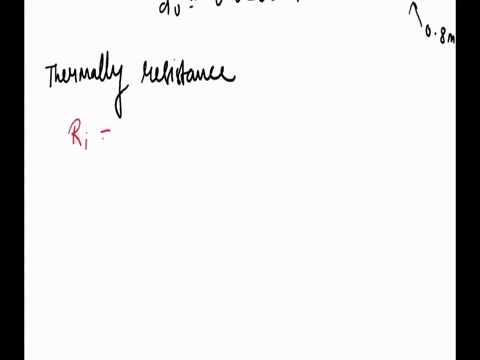 0.8m
Thermally resistance
Ri =